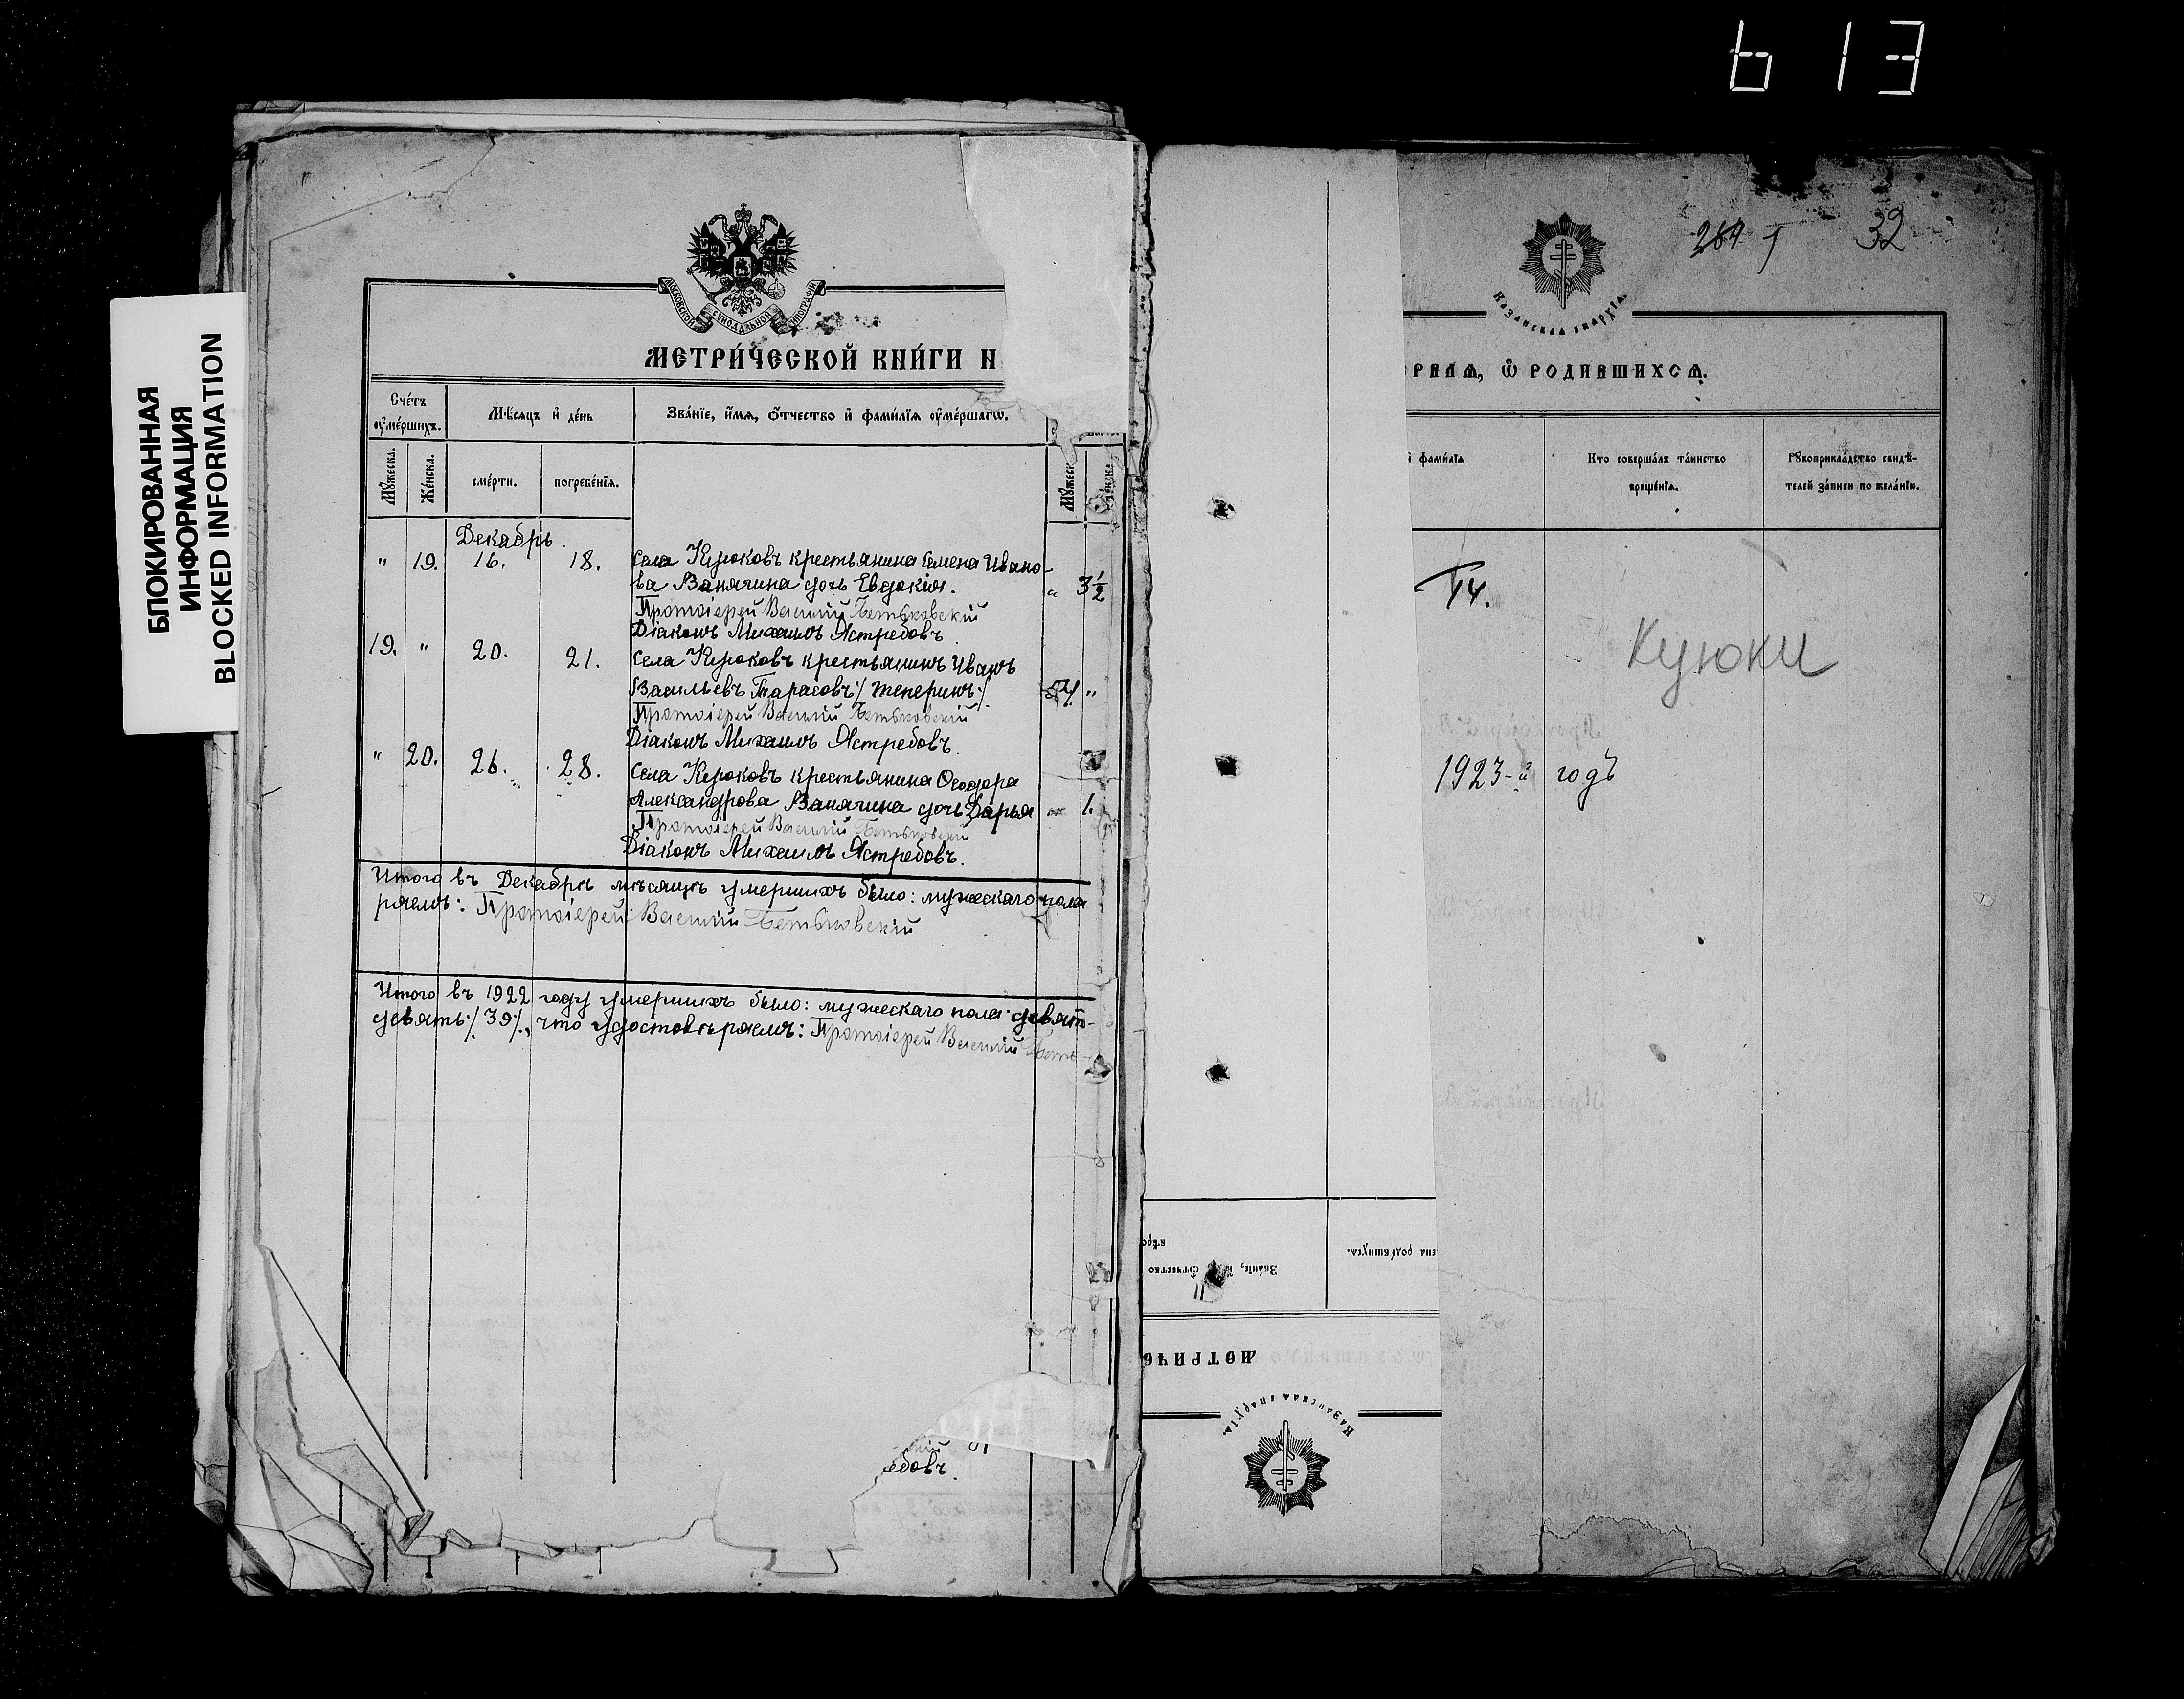 613
БЛОКИРОВАННАЯ
ИНФОРМАЦИЯ
BLOCKED INFORMATION
МОСКОВСКОЙ СѴНОДАЛЬНОЙ ТИПОГРАФІИ
МЕТРИ́ЧЕСКОЙ КНИ́ГИ Н
Сче́тъ ᲂу҆ме́ршихъ.
Мѣ́сяцъ и҆ де́нь
Зва́нїе, и҆́мѧ, ѻ҆́тчество и҆ фами́лїѧ ᲂу҆ме́ршагѡ.
Мꙋ́жеска.
Же́нска.
сме́рти.
погребе́нїѧ.
Мꙋ́жеск
Декабрь.
" 19. 16. 18. Села Куюковъ крестьянина Семена Ивано-
ва Ванягина дочь Евдокія. " 3½
Протоіерей Василій Бетьковскій
Діаконъ Михаилъ Ястребовъ.
19. " 20. 21. Села Куюковъ крестьянинъ Иванъ
Васильевъ Тарасовъ:/ "
Протоіерей Василій Бетьковскій
Діаконъ Михаилъ Ястребовъ.
" 20. 26. 28. Села Куюковъ крестьянина Ѳеодора
Александрова Ванягина дочь Дарья " 1.
Протоіерей Василій Бетьковскій
Діаконъ Михаилъ Ястребовъ.
Итого въ Декабрѣ мѣсяцѣ умершихъ было: мужескаго пола
ряемъ: Протоіерей Василій Бетьковскій
Итого въ 1922 году умершихъ было: мужескаго пола девят-
девять:/ 39/., что удостовѣряемъ: Протоіерей Василій Беть-
ебовъ.
269 32
Казанская епархїѧ.
РВАѦ, Ѡ҆ РОДИВШИХСѦ.
и҆ фами́лїѧ
Кто совершалъ та́инство креще́нїѧ.
Рꙋкоприкла́дство свидѣ́-
телей за́писи по жела́нїю.
Куюки
1923-й годъ
ена роди́вшихсѧ.
Зва́нїе, и҆ ѻ҆́тчество
вѣро
МЕТРИЧЕ
Казанская епархїѧ.